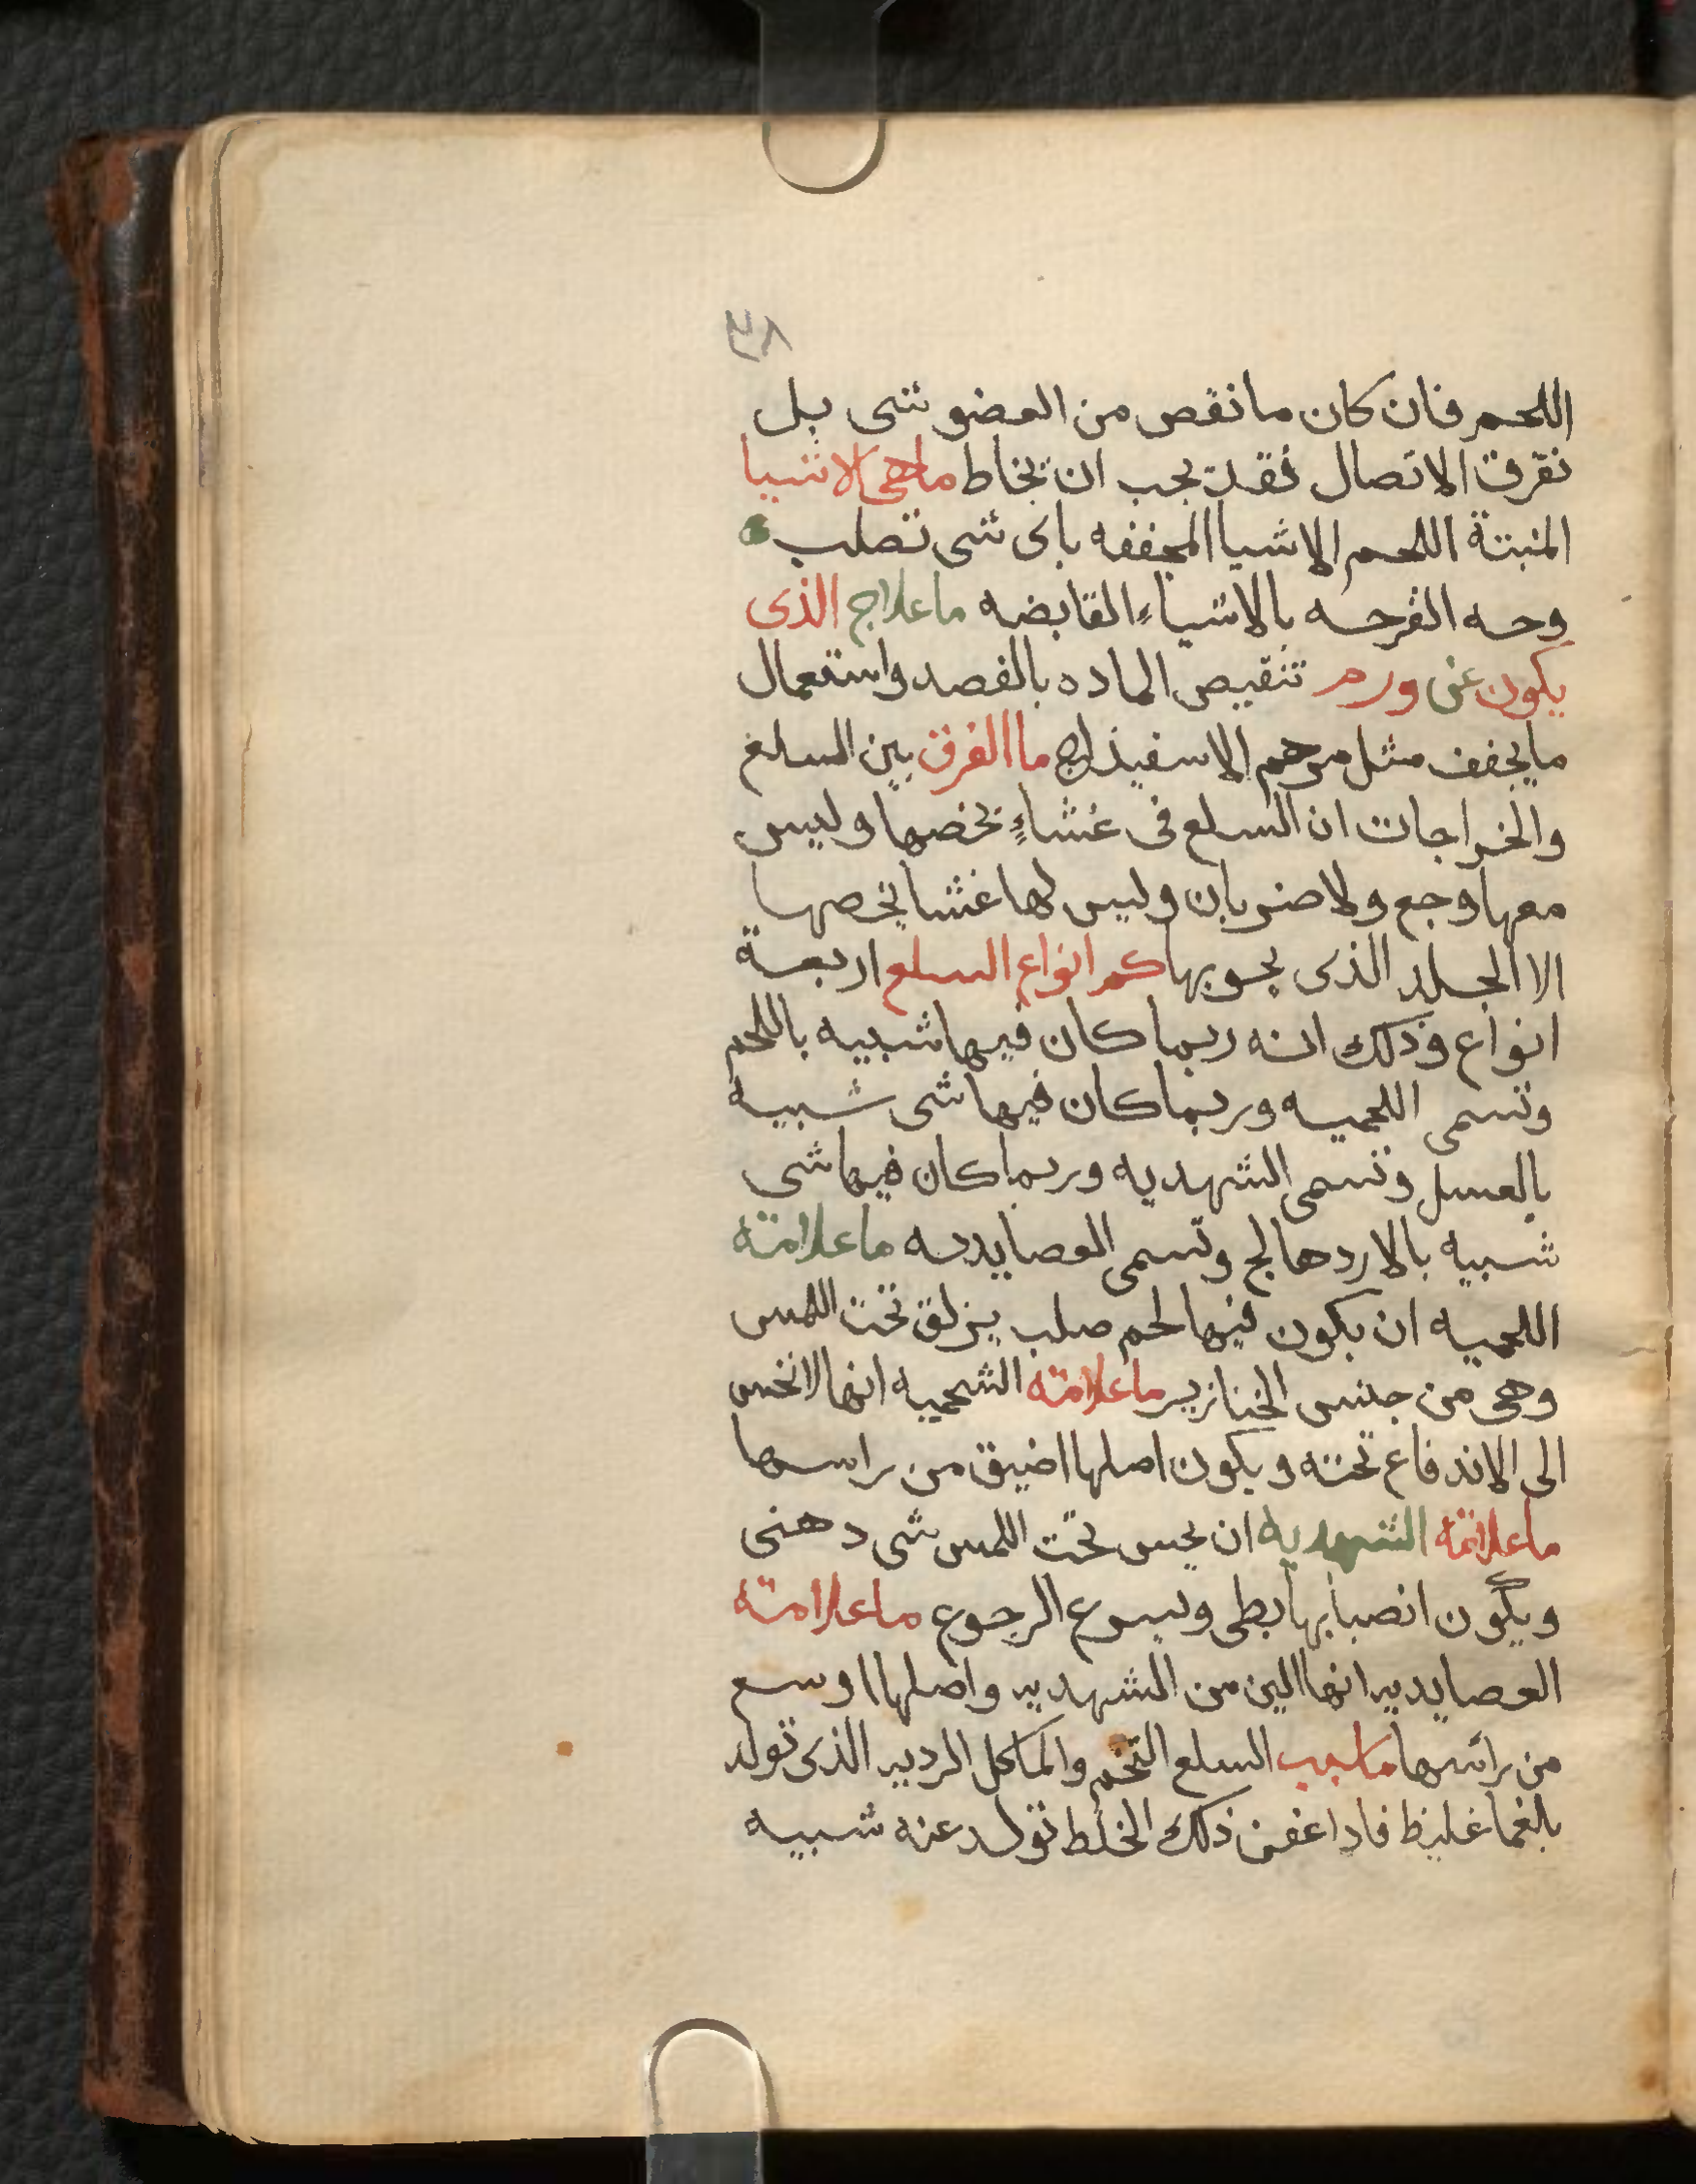 ٣٨
اللحم فان كان ما نقص من العضو شى بل
تفرق الاتصال فقد يجب ان تخاط ماهى الاشيا
المنبتة اللحم الاشيا المجففه باى شى تصلب
وحه القرحه بالاشياء القابضه ما علاج الذى
يكون عن ورم تنقيص الماده بالفصد واستعمال
ما يجفف مثل مرهم الاسفيذاج ما الفرق بين السلع
والخراجات ان السلع فى غشاءٍ يخصها وليس
معها وجع ولا ضربان وليس لها غشا يخصها
الا الجلد الذى يحويها كم انواع السلع اربعة
انواع وذلك انه ربما كان فيها شبيه باللحم
وتسمى اللحميه وربما كان فيها شى شبيه
بالعسل وتسمى الشهديه وربما كان فيها شى
شبيه بالاردهالج وتسمى العصايديه ما علامة
اللحميه ان يكون فيها لحم صلب يزلق تحت اللمس
وهى من جنس الخنازير ما علامة الشحميه انها لا تحس
الى الاندفاع تحته ويكون اصلها اضيق من راسها
ما علامة الشهديه ان يحس تحت اللمس شى دهنى
ويكون انصبابها بطى ويسرع الرجوع ما علامة
العصايديه انها الين من الشهديه واصلها اوسع
من رأسها ما سبب السلع التخم والماكل الرديه الذى تولد
بلغما غليظ فاذا عفن ذلك الخلط تولد عنه شبيه